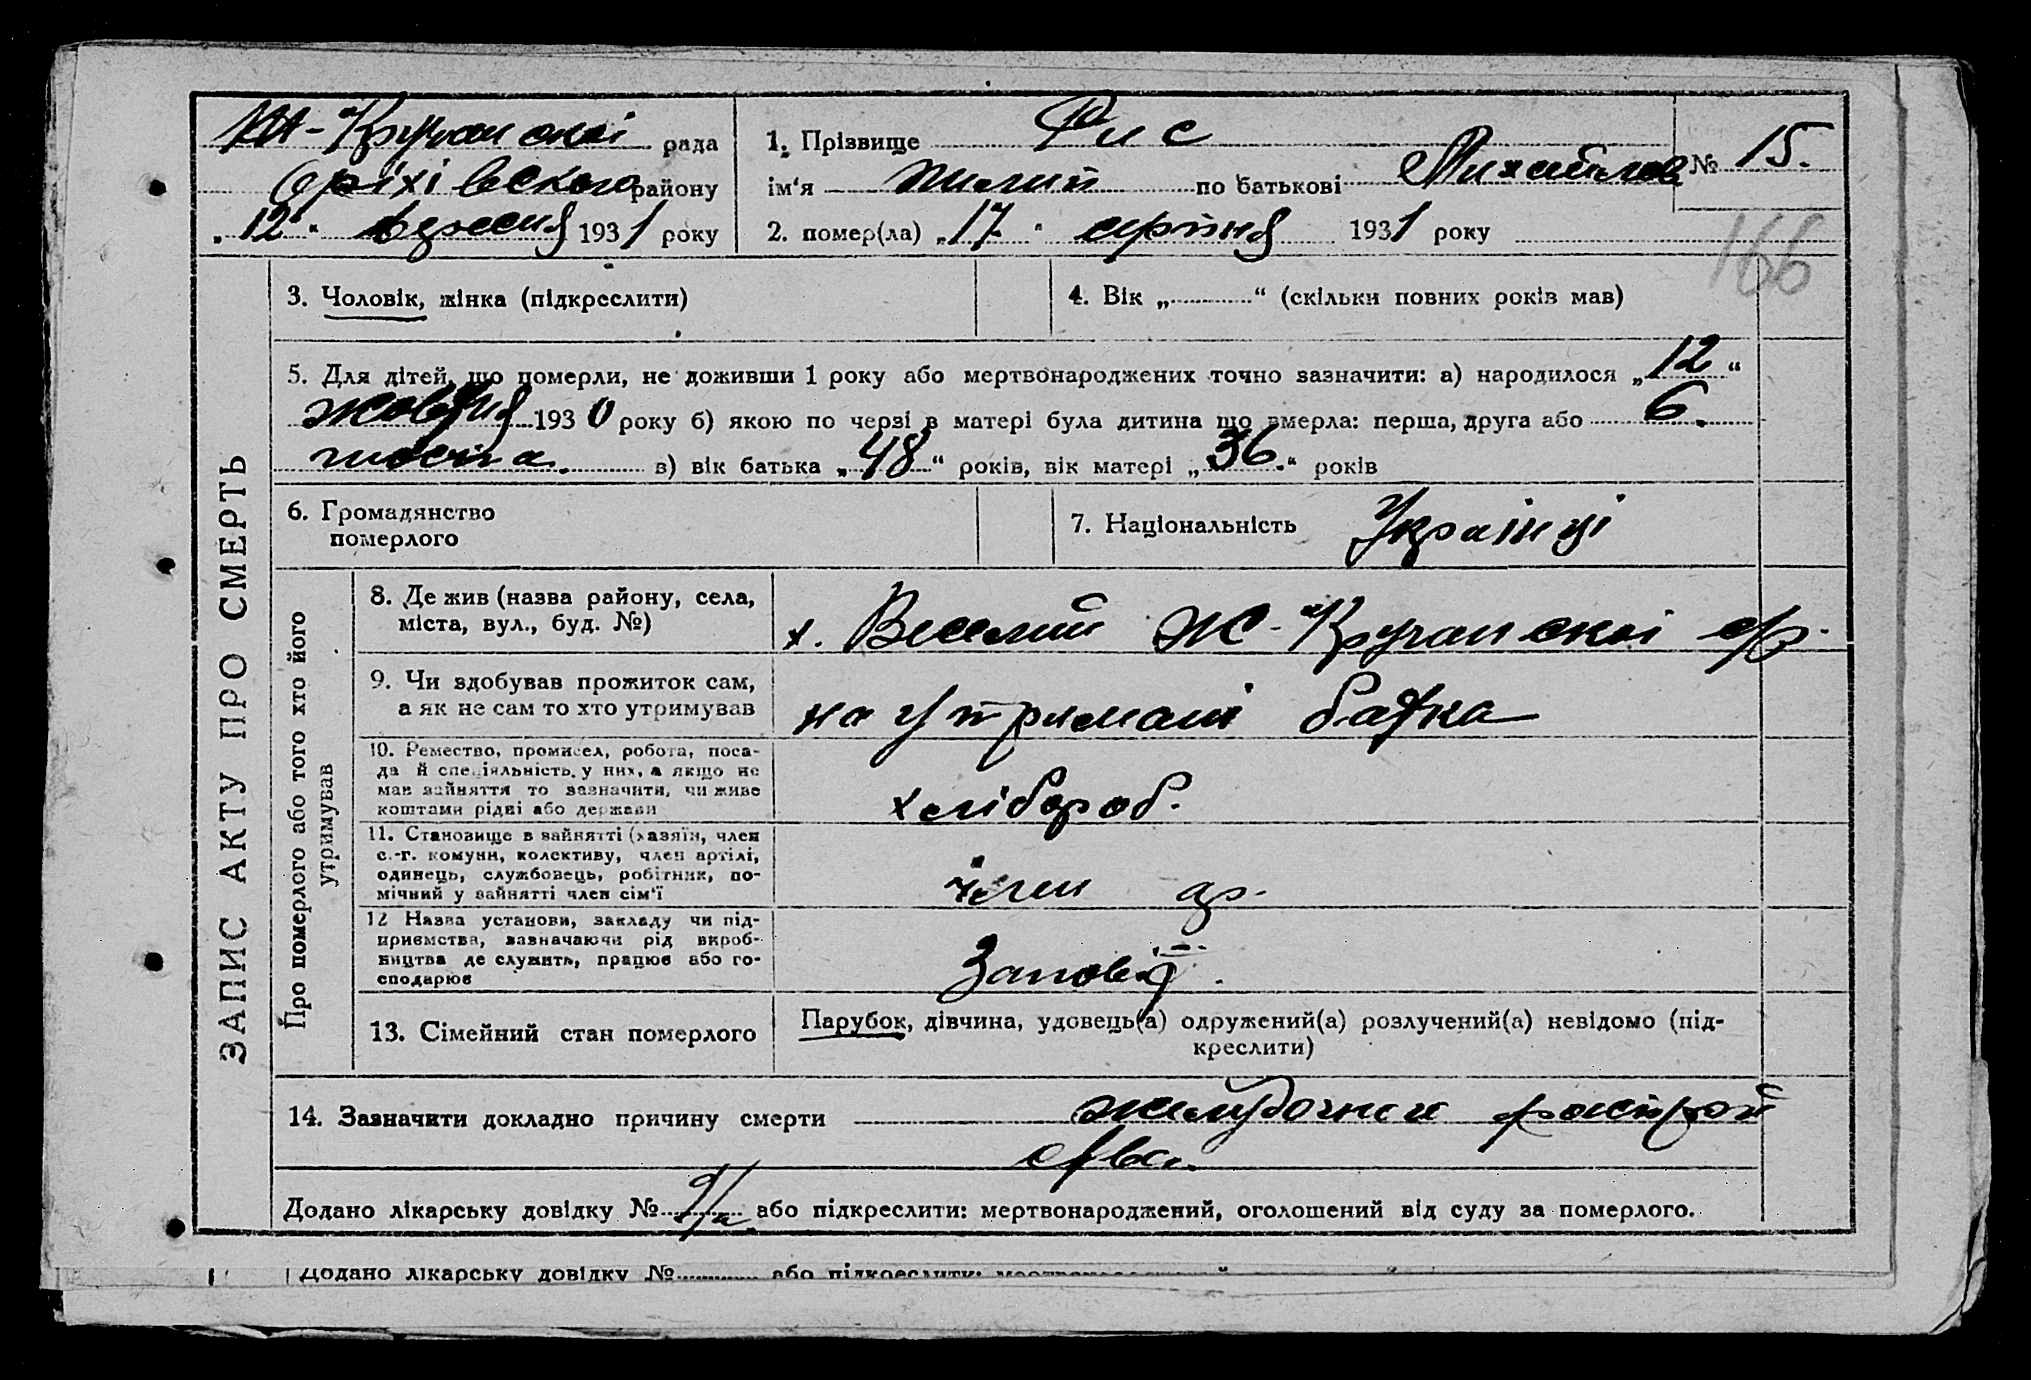 Ж-Кручанскоі рада
Оріхівского району
„12“ вересня 1931 року
1. Прізвище Фис
ім‘я по батькові Михайлов
№ 15.
2. помер(ла) „17“ серпня 1931 року
166
ЗАПИС АКТУ ПРО СМЕРТЬ
3. Чоловік, жінка (підкреслити)
4. Вік „............“ (скільки повних років мав)
5. Для дітей, що померли, не доживши 1 року або мертвонароджених точно зазначити: а) народилося „12“
жовтня 1930 року б) якою по черзі в матері була дитина що вмерла: перша, друга або 6.
шоста. в) вік батька „48“ років, вік матері „36.“ років
6. Громадянство
померлого
7. Національність Українці
Про померлого або того хто його
утримував
8. Де жив (назва району, села,
міста, вул., буд. №)
х. Веселий Ж-Кручанскоі с/р.
9. Чи здобував прожиток сам,
а як не сам то хто утримував
на утримані батка
10. Ремество, промисел, робота, поса-
да й спеціяльність у них, а якщо не
мав зайняття то зазначити, чи живе
коштами рідні або держави
хлібороб.
11. Становище в зайнятті (хазяїн, член
с.-г. комуни, колективу, член артілі,
одинець, службовець, робітник, по-
мічний у зайнятті член сім‘ї
член ар.
12 Назва установи, закладу чи під-
приємства, зазначаючи рід вироб-
ництва де служить, працює або го-
сподарює
Заповіт.
13. Сімейний стан померлого
Парубок, дівчина, удовець(а) одружений(а) розлучений(а) невідомо (під-
креслити)
14. Зазначити докладно причину смерти желудочний растрой
ства.
Додано лікарську довідку № або підкреслити: мертвонароджений, оголошений від суду за померлого.
Додано лікарську довідку № або підкреслити: